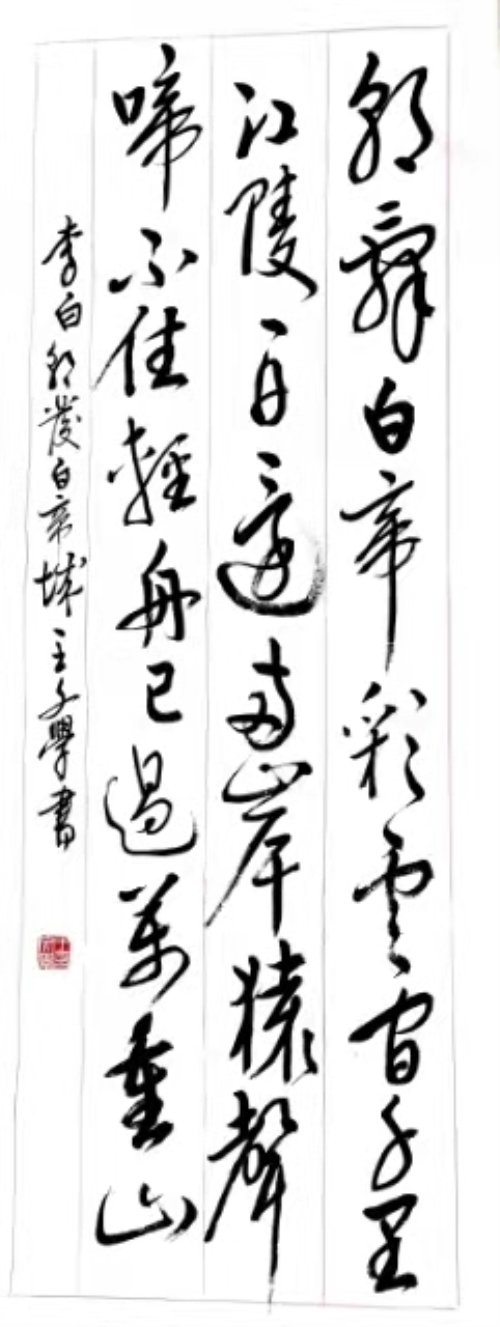 朝辭白帝彩雲間千里
江陵一日還兩岸猿聲
啼不住輕舟已過萬重山
李白朝發白帝城王子學書